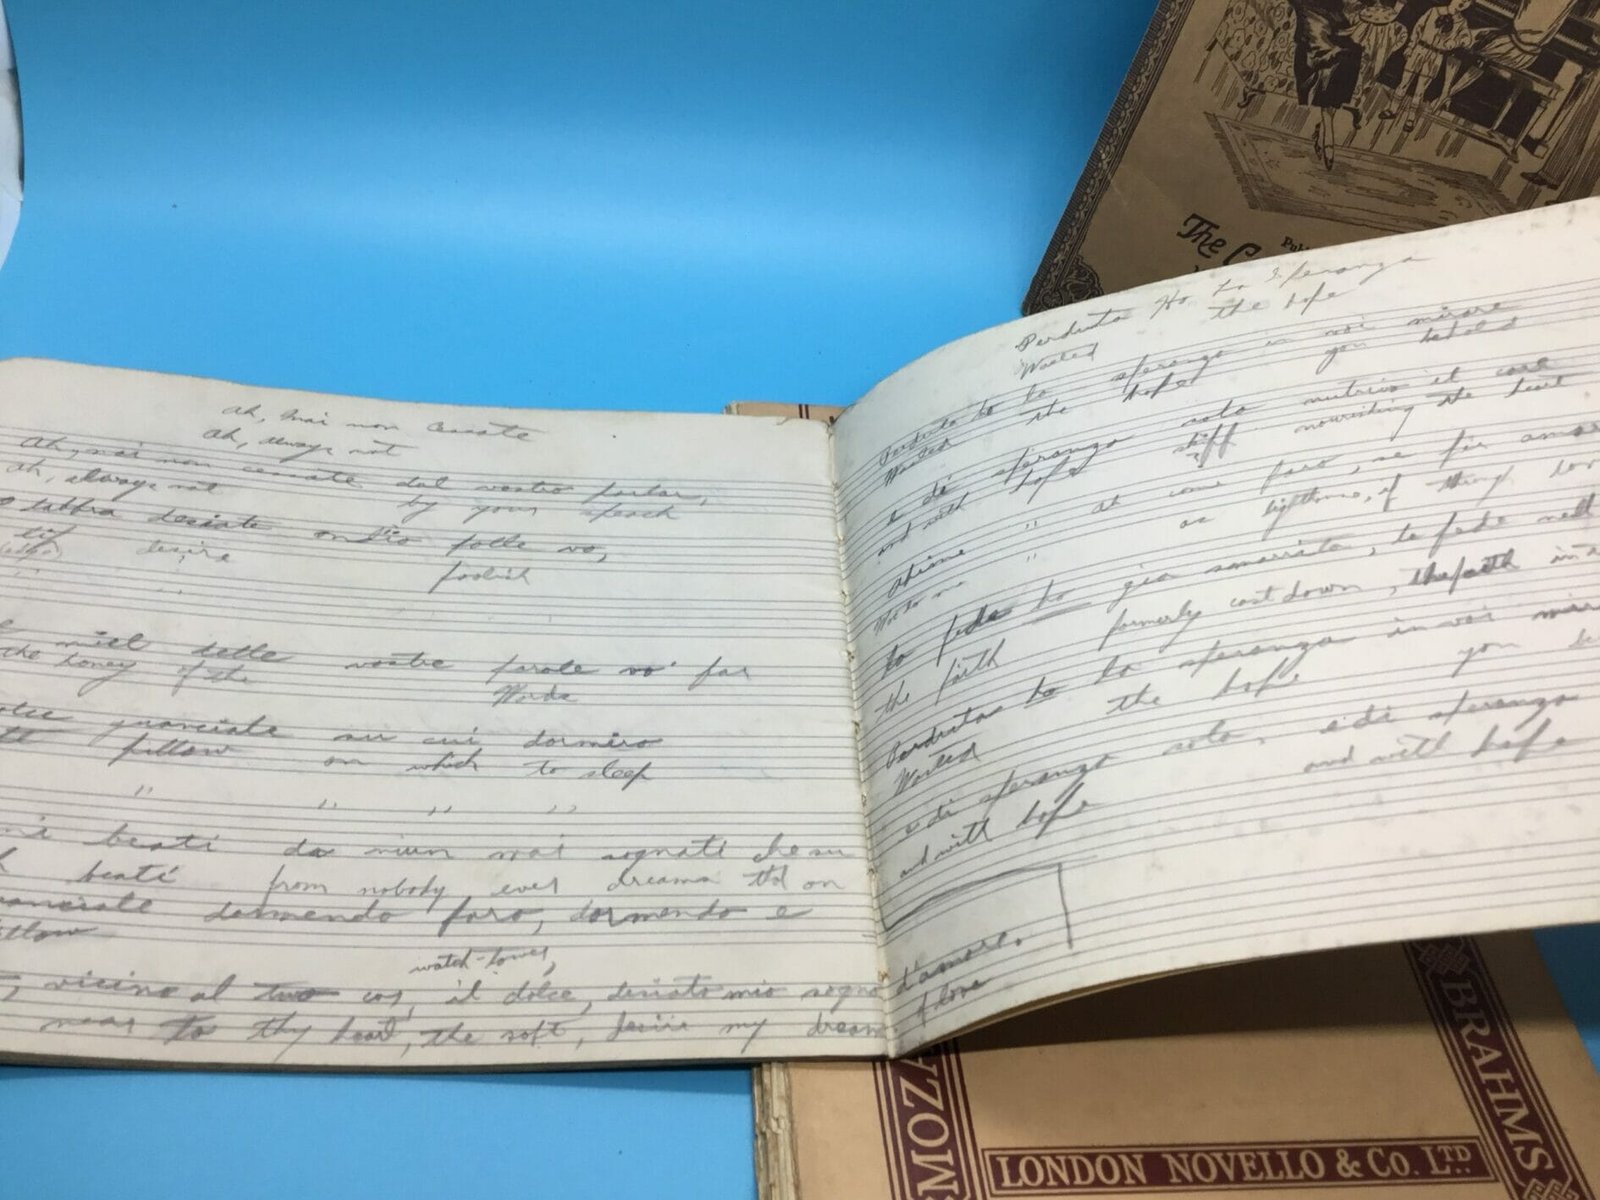 Ah, mai non cessate
Ah, always not
Ah, mai non cessate dal vostro parlar,
Ah, always not by your speach
labbra desiate ondio folle vo,
desire
foolish
miel delle vostre parole vo' far
the honey of the Words
guanciale su cui dormiro
pillow on which to sleep
beati da niun mai sognati che su
beati from nobody ever dreams that on
dormendo faro, dormendo e
watch-tower,
vicino al tuo cor, il dolce, desiato mio sogno
near to thy heart, the soft, desire my dream
Perduta Ho La Speranza
Wasted the hope
Perduta ho la speranza in voi mirare
Wasted the hope you behold
e di speranza solo nutrivo il core
and with hope stiff nourishing the heart
Ahime " at come faro, se fia amor
Woe to me " as lighthouse, if thing love
la fede ho gia smarrita, la fede nell
the faith formerly cast down, the faith in
Perduta ho la speranza in voi mirar
Wasted the hope you be
e di speranza solo, e di speranza
and with hope and with hope
d'amore.
of love
The
Publ
MOZA
BRAHMS
LONDON NOVELLO & CO. LTD.